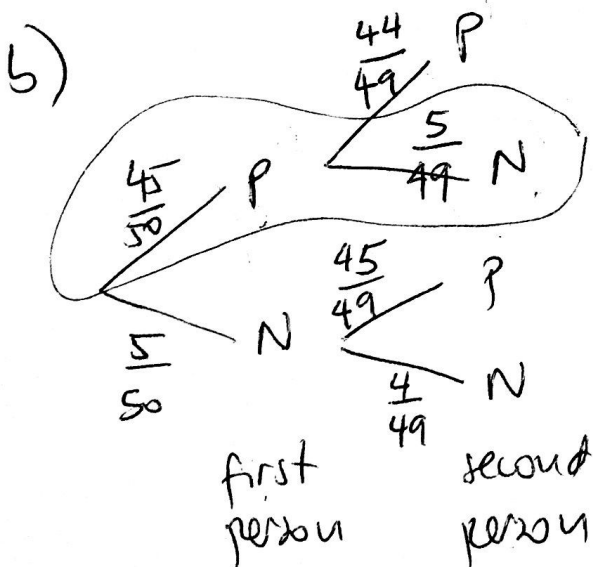 b)
44/49 P
5/49 N
45/50 P
45/49 P
5/50 N
4/49 N
first second
person person